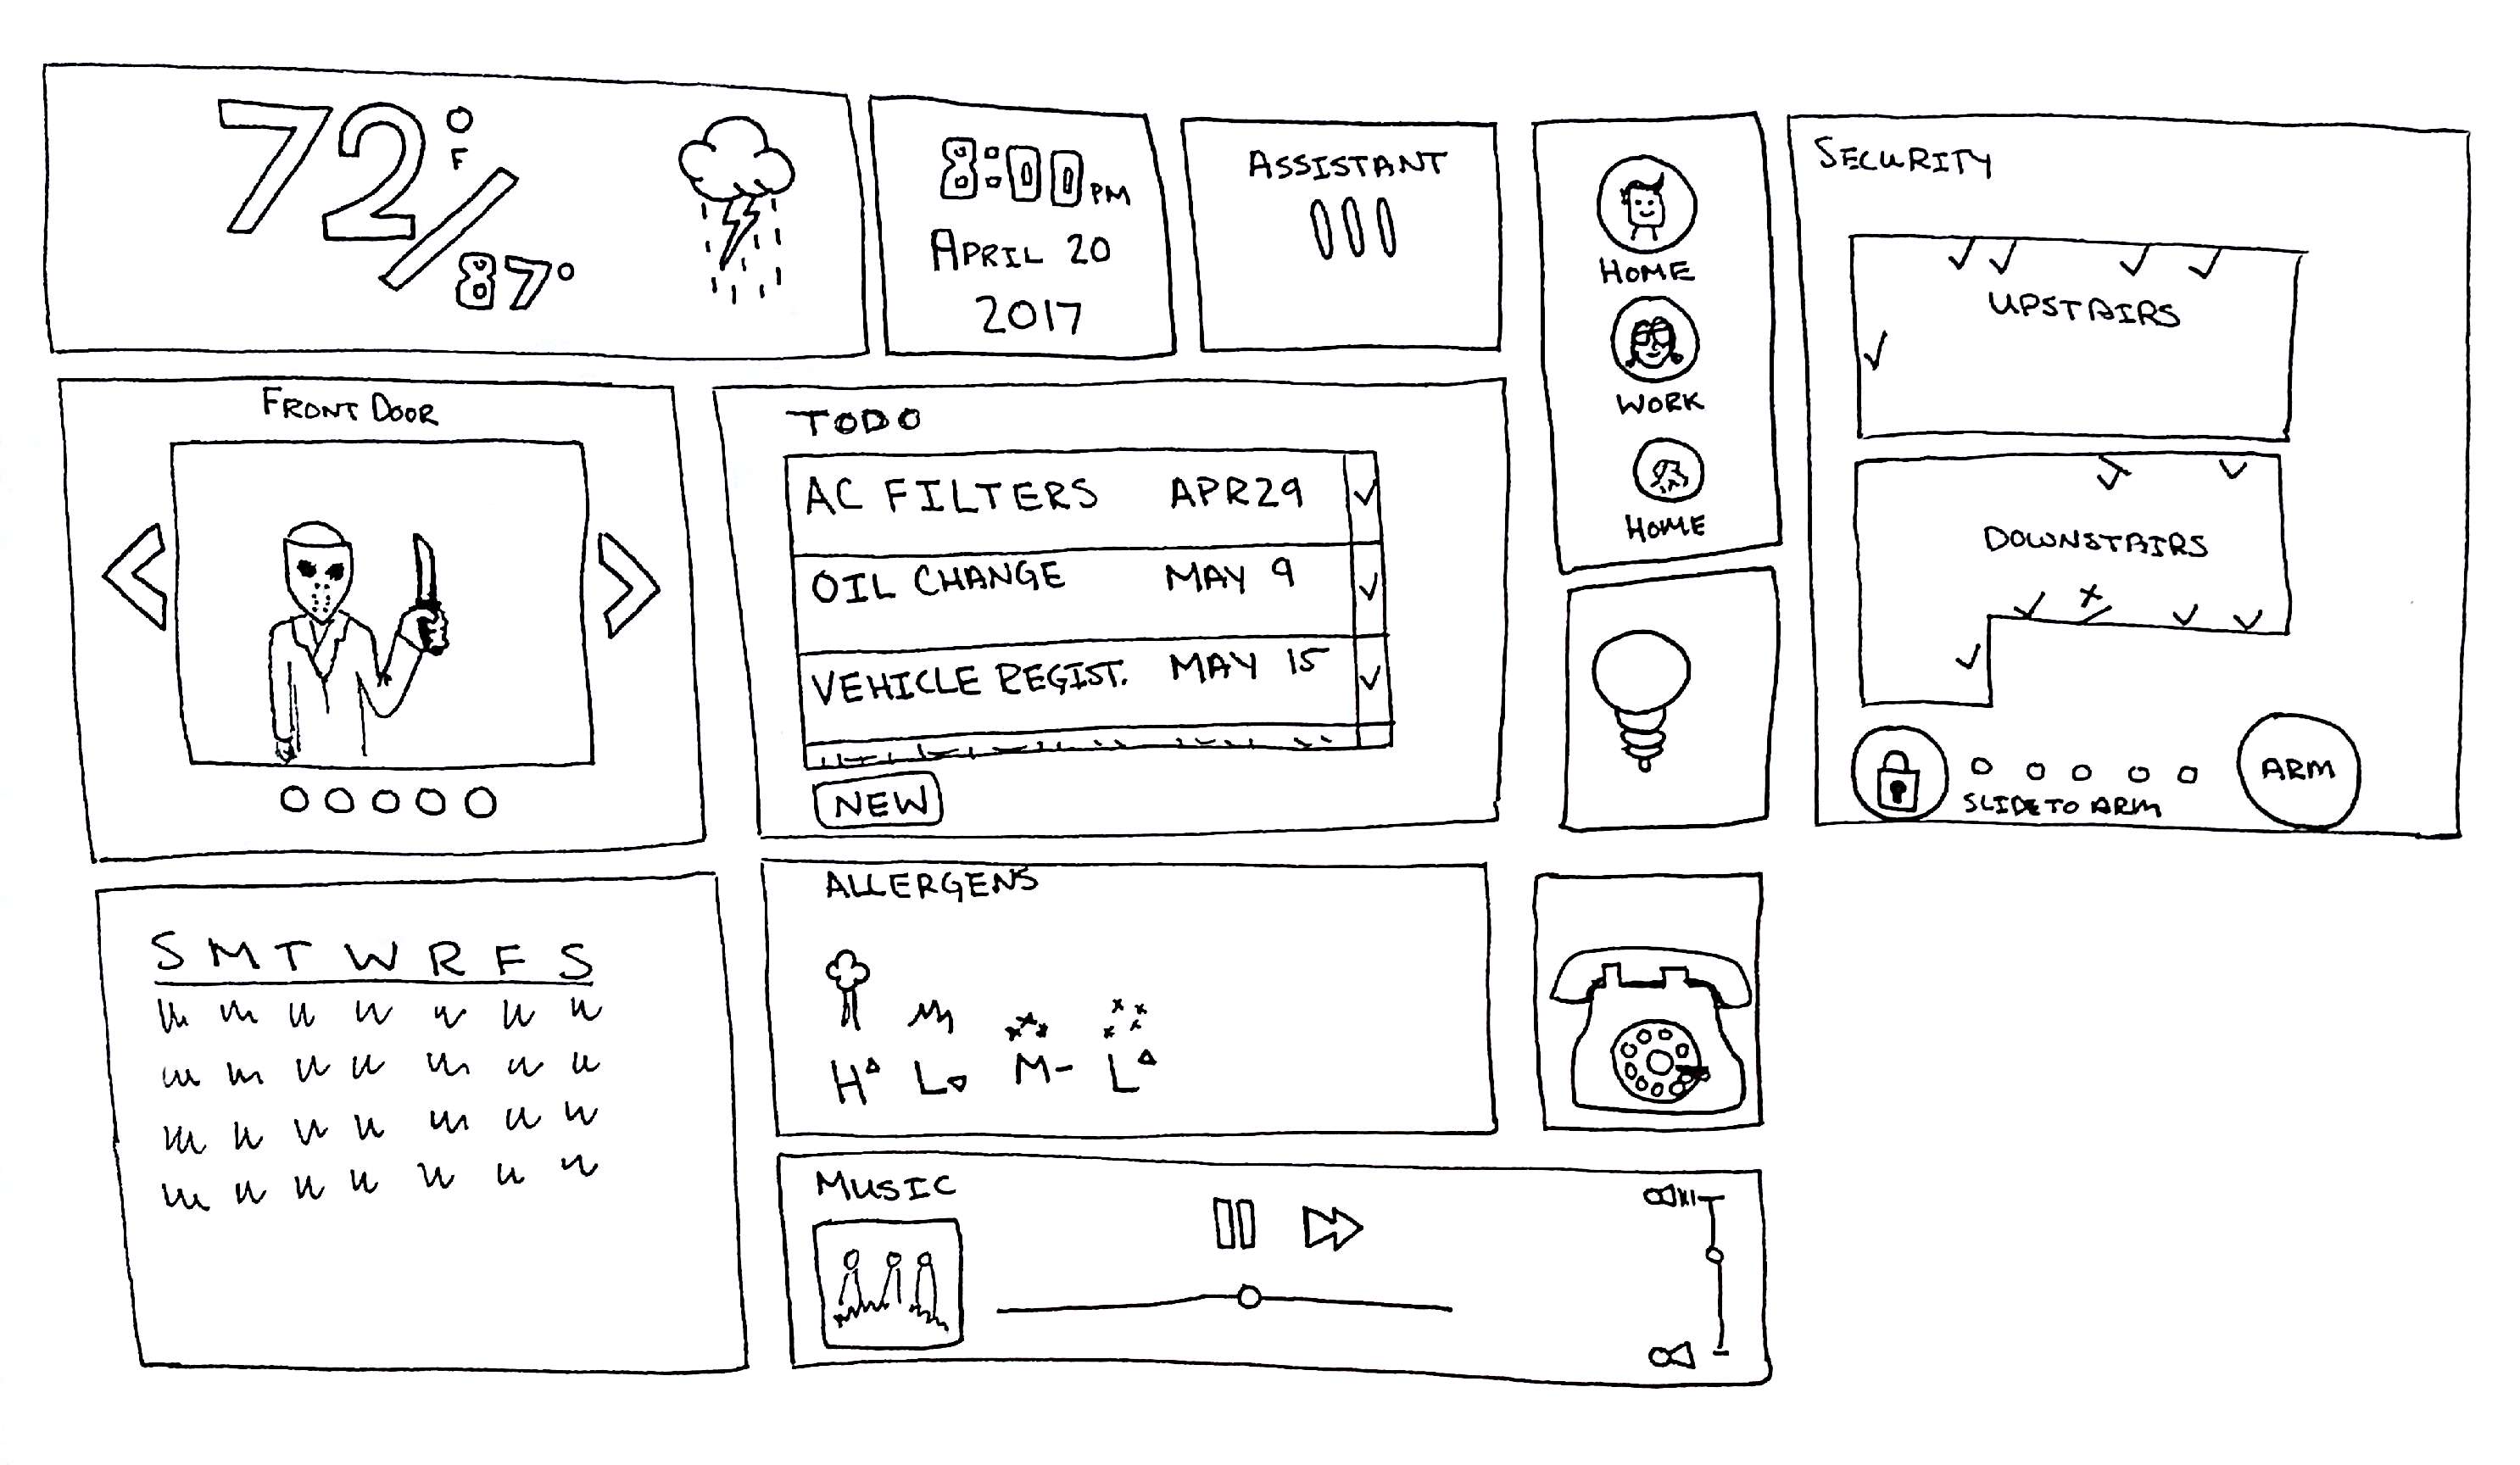 72°F/87°
8:00PM
APRIL 20
2017
ASSISTANT
HOME
WORK
HOME
SECURITY
UPSTAIRS
DOWNSTAIRS
SLIDE TO ARM
ARM
FRONT DOOR
TODO
AC FILTERS APR29
OIL CHANGE MAY 9
VEHICLE REGIST. MAY 15
NEW
S M T W R F S
ALLERGENS
H L M- L
MUSIC